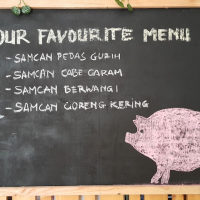 OUR FAVOURITE MENU
- SAMCAN PEDAS GURIH
- SAMCAN CABE GARAM
- SAMCAN BERWANGI
- SAMCAN GORENG KERING